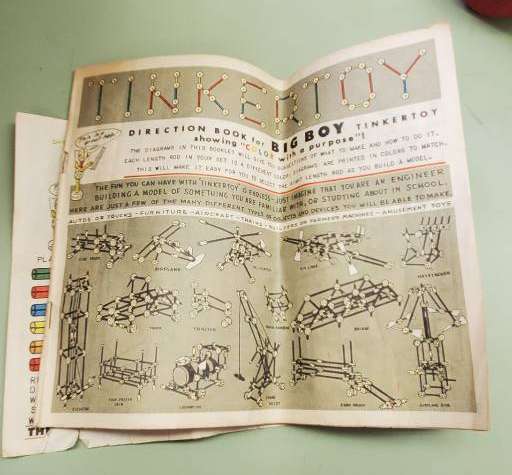 TINKERTOY
DIRECTION BOOK for BIG BOY TINKERTOY
showing "COLOR with a purpose"!
THE DIAGRAMS IN THIS BOOKLET WILL GIVE YOU SUGGESTIONS OF WHAT TO MAKE AND HOW TO DO IT.
EACH LENGTH ROD IN YOUR SET IS A DIFFERENT COLOR. DIAGRAMS ARE PRINTED IN COLORS TO MATCH.
THIS WILL MAKE IT EASY FOR YOU TO SELECT THE RIGHT LENGTH ROD AS YOU BUILD A MODEL-
THE FUN YOU CAN HAVE WITH TINKERTOY IS ENDLESS - JUST IMAGINE THAT YOU ARE AN ENGINEER
BUILDING A MODEL OF SOMETHING YOU ARE FAMILIAR WITH, OR STUDYING ABOUT IN SCHOOL.
HERE ARE JUST A FEW OF THE MANY DIFFERENT TYPES OF OBJECTS AND DEVICES YOU WILL BE ABLE TO MAKE.
AUTOS OR TRUCKS - FURNITURE - AIRCRAFT - TRAINS - BUILDERS OR FARMERS MACHINES - AMUSEMENT TOYS
AIRPLANE
TRUCK
TRACTOR
BRIDGE
ELEVATOR
LOCOMOTIVE
AIRPLANE RIDE
PLA
R
D
W
S
W
TH